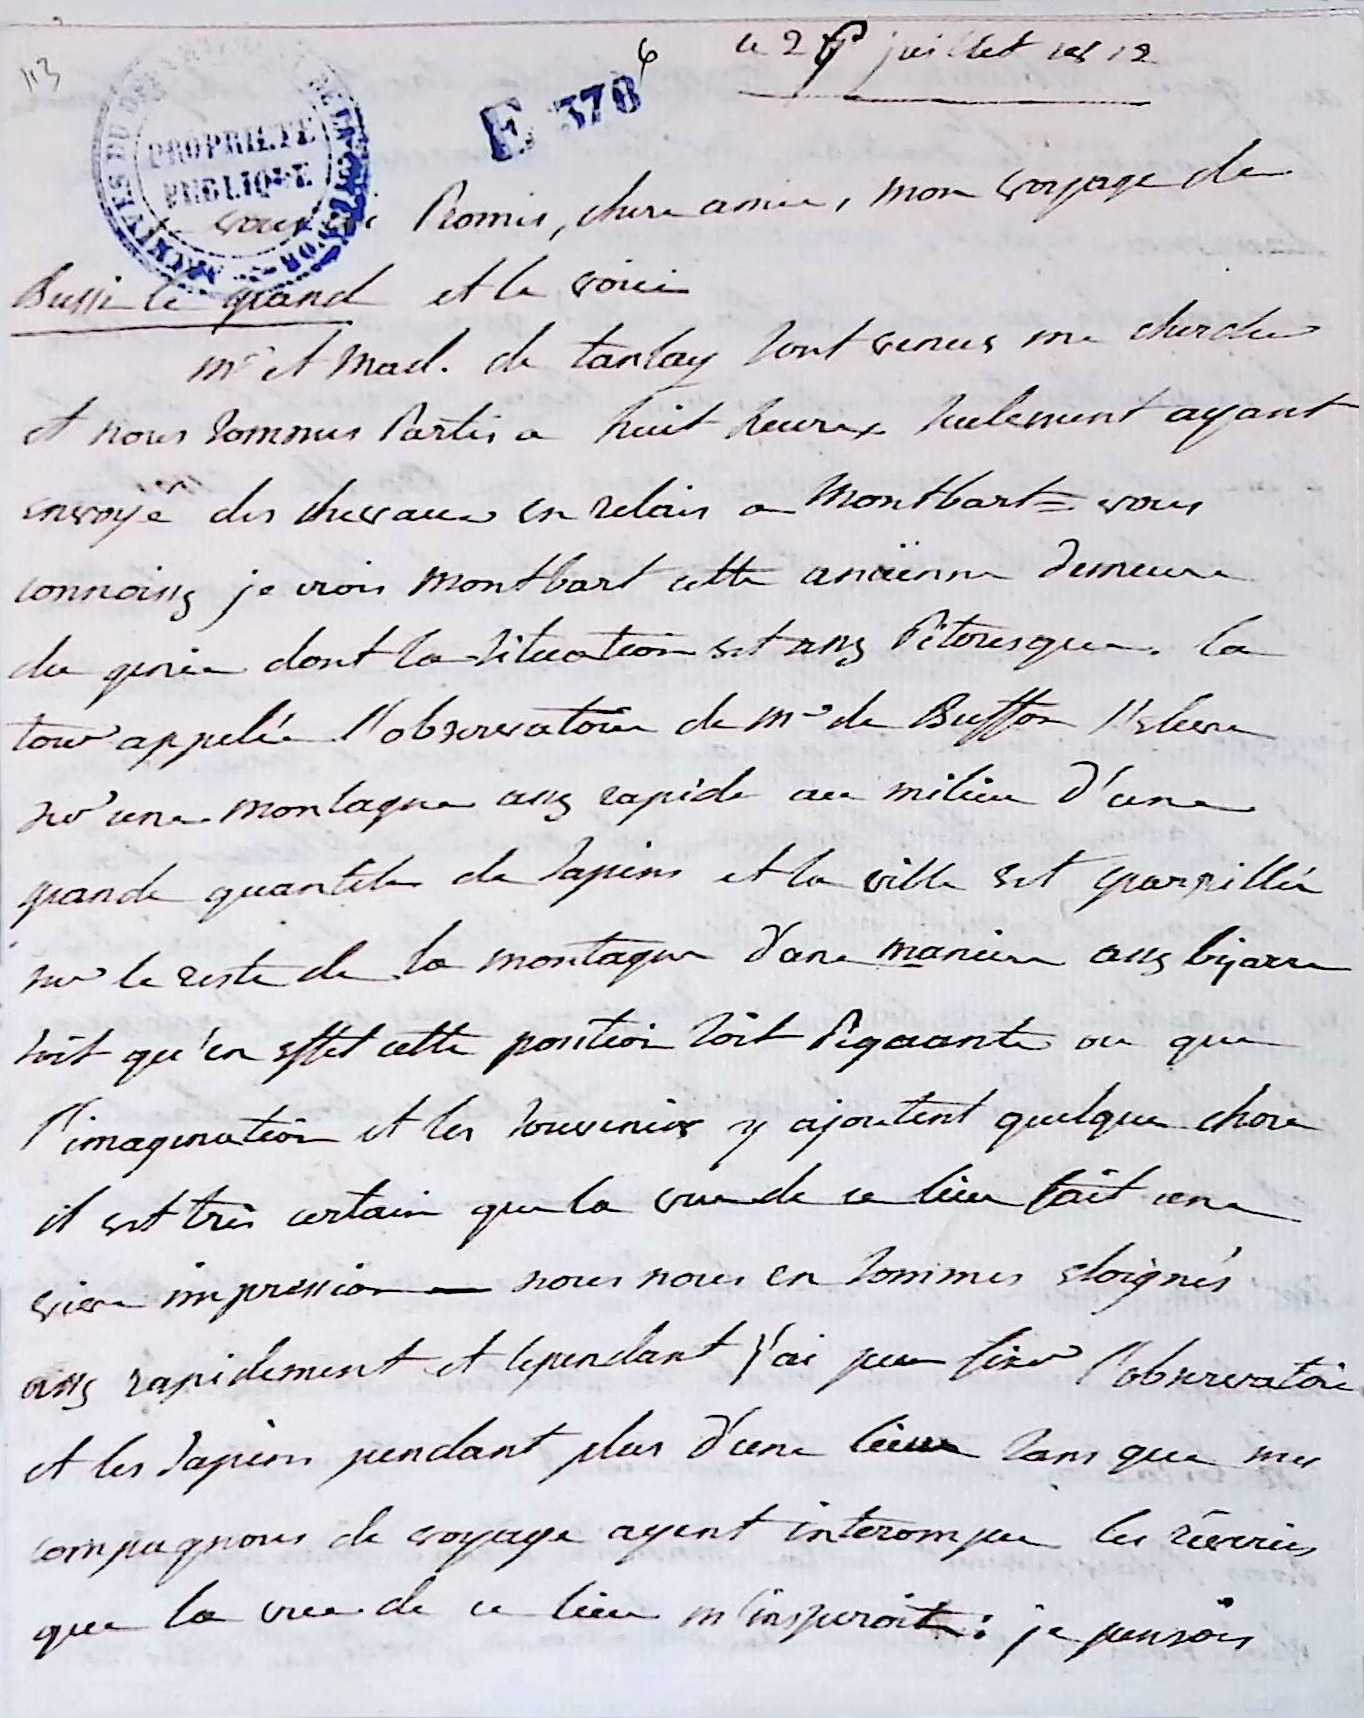 113
6
le 2 juillet 1812
ARCHIVES DU DÉPARTEMENT DE LA CÔTE-D'OR
PROPRIÉTÉ
PUBLIQUE
E 378
vous Promis, chere amie, mon voyage de
Bussi le grand et le voici
Mr et Mad. de tanlay sont venus me chercher
et nous sommes Partis a huit heures seulement ayant
envoyé des chevaux en relais a Montbart = vous
connoissés je crois Montbart cette anciënne demeure
du genie dont la situation est assés Pitoresque. la
tour appelée l'observatoire de Mr de Buffon s'eleve
sur une montagne assés rapide au milieu d'une
grande quantité de sapins et la ville est eparpillée
sur le reste de la montagne d'une maniere assés bizarre
soit qu'en effet cette position soit Piquante ou que
l'imagination et les souvenirs y ajoutent quelque chose
il est très certain que la vue de ce lieu fait une
vive impression — nous nous en sommes eloignés
assés rapidement et cependant j'ai pu fixer l'observatoire
et les sapins pendant plus d'une lieue sans que mes
compagnons de voyage ayent interompu les rêveries
que la vue de ce lieu m'inspiroit : je pensois